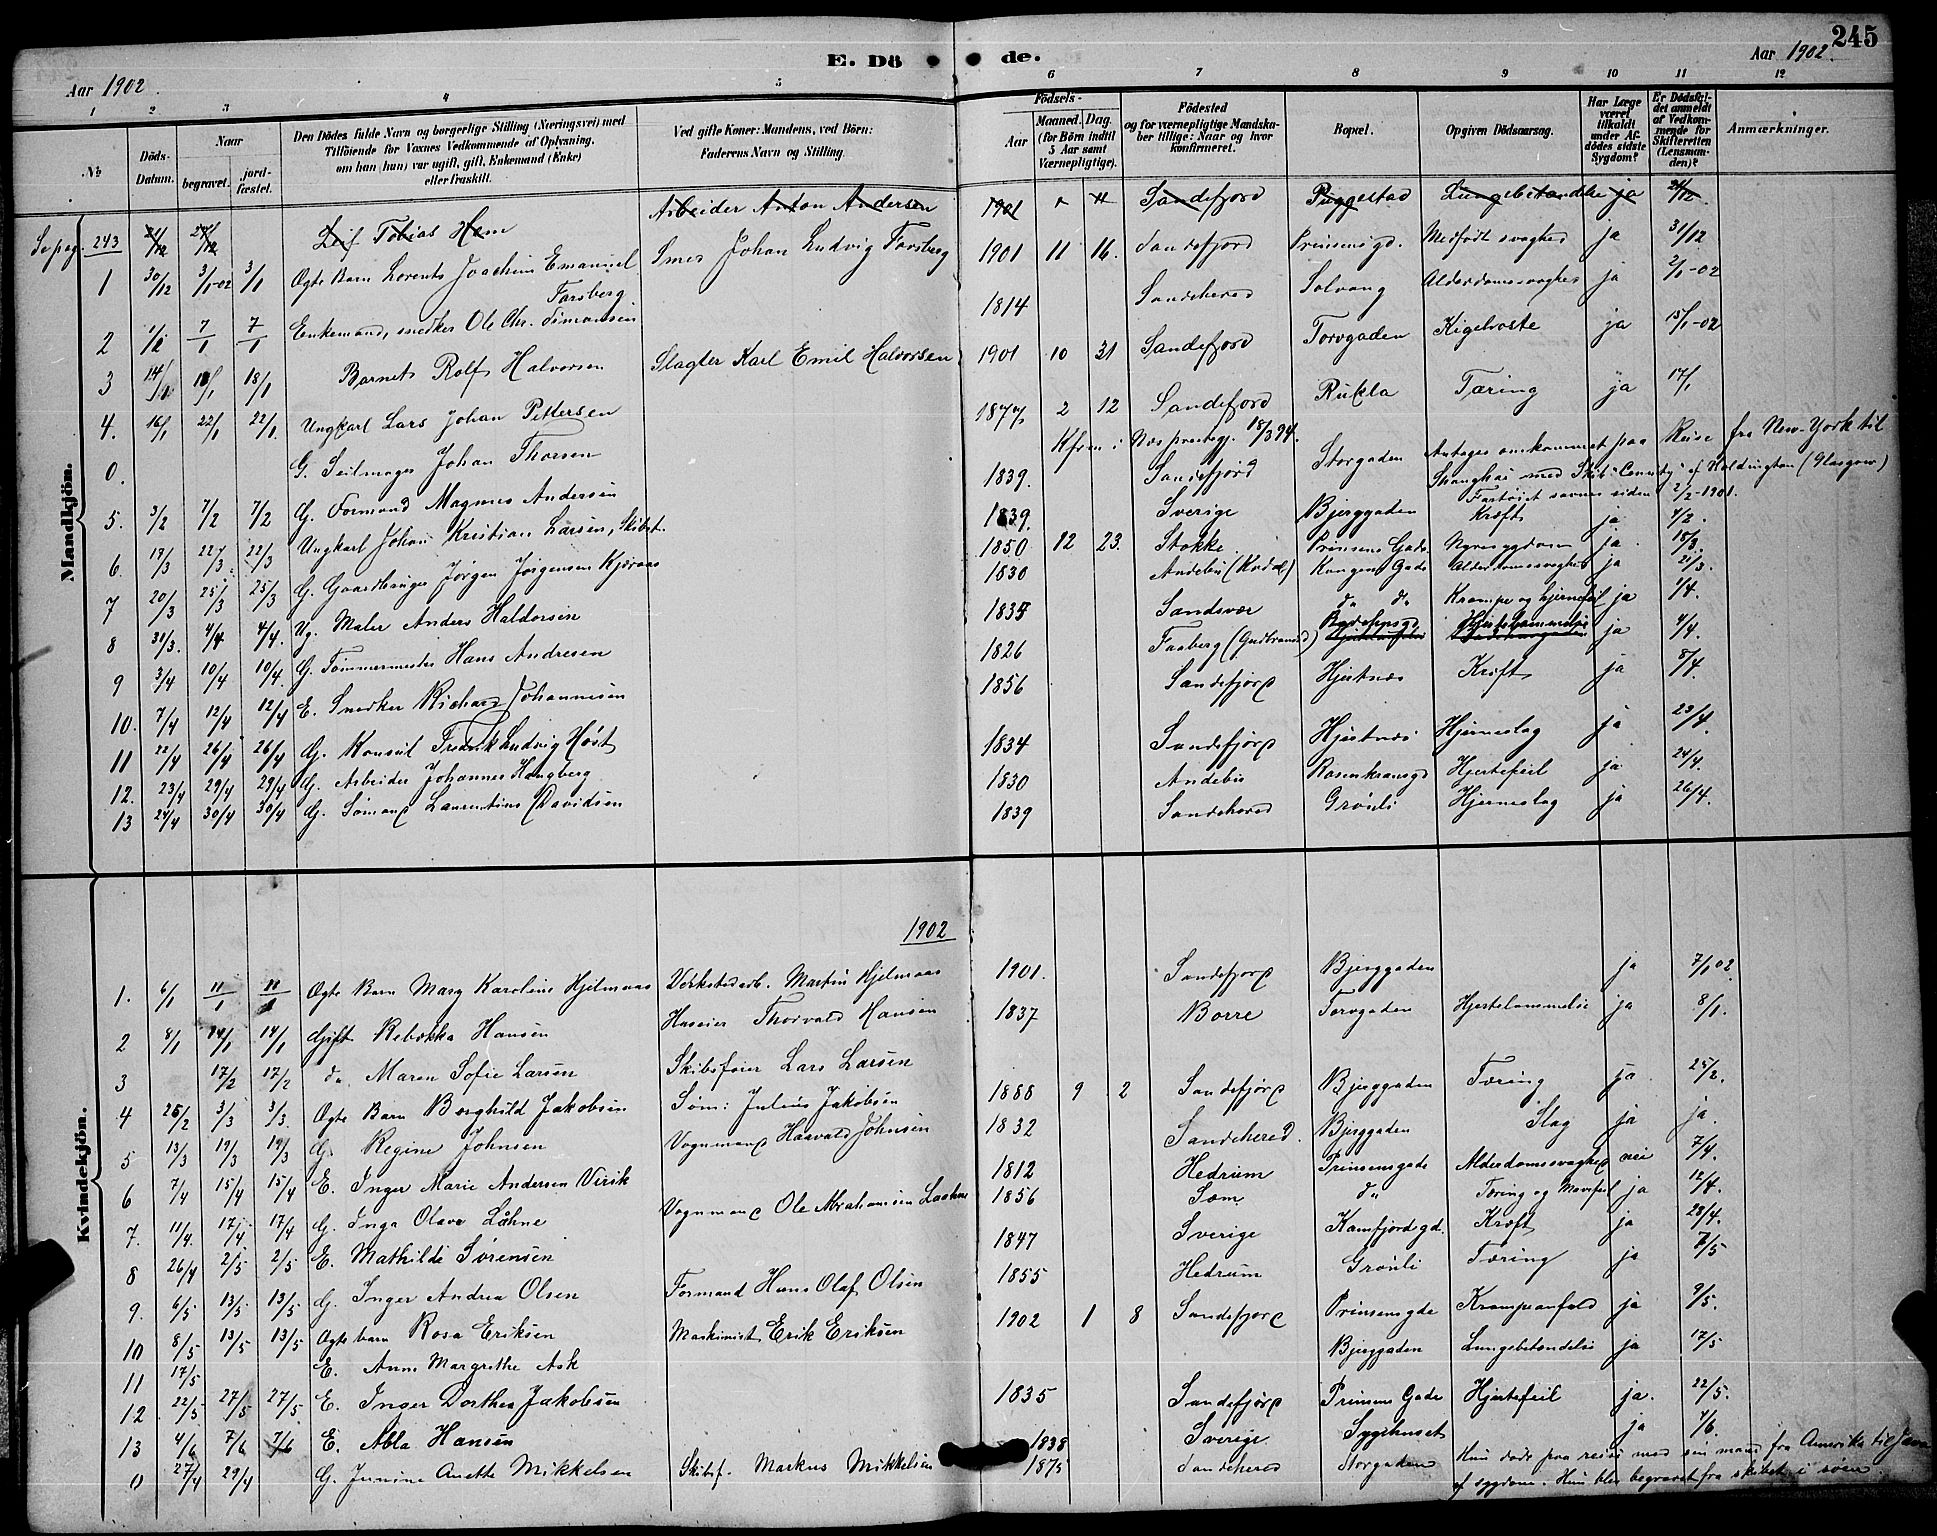 245
E. Döde.
Aar 1902.
Aar 1902.
1 2 3 4 5 6 7 8 9 10 11 12
No
Döds-Datum.
Naar
begravet.
jord-fæstet.
Den Dödes fulde Navn og borgerlige Stilling (Næringsvei) med
Tilföiende for Voxnes Vedkommende af Oplysning,
om han (hun) var ugift, gift, Enkemand (Enke)
eller fraskilt.
Ved gifte Koner: Mandens, ved Börn:
Faderens Navn og Stilling.
Födsels-
Aar
Maaned. Dag.
(for Börn indtil
5 Aar samt
Værnepligtige).
Födested
og for værnepligtige Mandska-
ber tillige: Naar og hvor
konfirmeret.
Bopæl.
Opgiven Dödsaarsag.
Har Læge
været
tilkaldt
under Af-
dödes sidste
Sygdom?
Er Dödsfal-
det anmeldt
af Vedkom-
mende for
Skifteretten
(Lensman-
den)?
Anmærkninger.
Mandkjön.
Se pag. 243 21/12 24/12 Leif Tobias Ham Arbeider Anton Andersen 1901 Sandefjord Puggestad Lungebetændelse ja 24/12
1 30/12 3/1-02 3/1 Ægte Barn Lorents Joachim Emanuel Forsberg Smed Johan Ludvig Forsberg 1901 11 16. Sandefjord Prinsensgd. Medfödt svaghed ja 31/12
2 1/1 7/1 7/1 Enkemand, snedker Ole Chr. Simonsen 1814 Sandeherred Solvang Alderdomssvaghed ja 2/1-02
3 14/1 18/1 18/1 Barnet Rolf Halvorsen Slagter Karl Emil Halvorsen 1901 10 31 Sandefjord Torvgaden Kighoste ja 15/1-02
4. 16/1 22/1 22/1. Ungkarl Lars Johan Pettersen 1877 2 12 Sandefjord Rukla Tæring ja 17/1
Kfrm. i Næs prestegj. 18/3 94.
0. G. Seilmager Johan Thorsen 1839. Sandefjord Storgaden Antages omkommet paa Reise fra New-York til
Shanghai med Skib af (Glasgow)
Fartöiet savnes siden 2/2-1901.
5. 3/2 7/2 7/2 G. Formand Magnus Andersen 1839. Sverige Bjerggaden Kræft ja 4/2.
6. 18/3 22/3 22/3 Ungkarl Johan Kristian Larsen, Skibst. 1850 12 23. Stokke Prinsens Gade. Nyresygdom ja 18/3.
7 20/3 25/3 25/3 G. Gaardbruger Jørgen Jørgensen Kjæraas 1830 Andebu Kongens Gade Alderdomssvaghed ja 21/3.
8 31/3. 4/4 4/4. Ug. Maler Anders Haldorsen 1835 Sandsvær do do Krampe og hjernefeil ja 1/4.
9 3/4 10/4 10/4. G. Tømmermester Hans Andresen 1826 Faaberg (Gudbransd) Hjertelammelse ja 4/4.
10. 7/4 12/4 12/4 E. Snedker Richard Johannesen 1856 Sandefjord Hjertnæs Kræft ja 8/4.
11 22/4 26/4 26/4 G. Konsul Fredrik Ludvig Høst 1834 Sandefjord Hjertnæs Hjerneslag ja 23/4.
12. 23/4 29/4 29/4 G. Arbeider Johannes Haugberg 1830 Andebu Rosenkransgd Hjertefeil ja 24/4.
13 24/4 30/4 30/4 G. Sømand Laurentius Davidsen 1839 Sandeherred Grønli Hjerneslag ja 26/4.
Kvindekjön.
1902
1. 6/1 11/1 11/1 Ægte Barn Mary Karoline Hjelmaas Verkstedarb. Martin Hjelmaas 1901. Sandefjord Bjerggaden ja 7/1 02
2 8/1 14/1 14/1 Gift Rebekka Hansen Huseier Thorvald Hansen 1837 Borre Torvgaden Hjertelammelse ja 8/1.
3 17/2 17/2 do Maren Sofie Larsen Skibsfører Lars Larsen
4 25/2 3/3 3/3. Ægte Barn Borghild Jakobsen Søm: Julius Jakobsen 1888 9 2 Sandefjord Bjerggaden Tæring ja 25/2.
5 13/3 19/3 19/3 G. Regine Johnsen Vognmand Haavald Johnsen 1832 Sandeherred. Bjerggaden Slag ja ja.
6 7/4 15/4 15/4 E. Inger Marie Andersen Virik 1812 Hedrum Prinsensgade Alderdomssvaghed nei 7/4.
7. 11/4. 17/4 17/4 G. Inga Olava Låhne Vognmand Ole Abrahamsen Laahne 1856 Sem do Tæring og Mavefeil ja 12/4.
8 26/4 2/5 2/5 E. Mathilde Sørensen 1847 Sverige Kamfjordgd. Kræft ja 28/4.
9. 6/5 13/5 13/5 G. Inger Andrea Olsen Formand Hans Olaf Olsen 1855 Hedrum Grønli Tæring ja 7/5
10 8/5 13/5 13/5 Ægte barn Rosa Eriksen Maskinist Erik Eriksen 1902 1 8 Sandefjord Prinsensgde Krampeanfald ja 9/5.
11 17/5 E. Anne Margrethe Ask Bjerggaden Lungebetændelse ja 17/5
12 22/5 27/5 27/5 E. Inger Dorthea Jakobsen 1835 Sandefjord Prinsens Gade Hjertefeil ja. 22/5.
13 4/6 7/6 7/6 E. Abla Hansen 1838 Sverige Sygehuset ja 4/6.
0 27/4 29/4 G. Junine Anette Mikkelsen Skibsf. Markus Mikkelsen 1875 Sandeherred Storgaden Hun døde paa reise med sin mand fra Amerika til Java
af sygdom. Hun blev begravet fra skibet i søen.